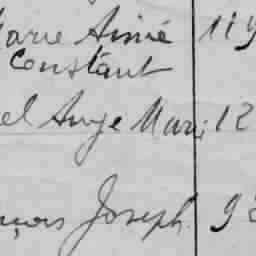 Marie Aimé 11
Constant
el Ange Marie 12
nçois Joseph 9